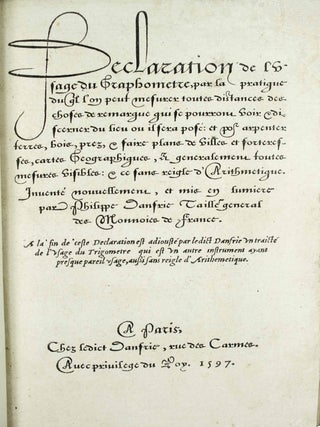 Declaration de l'v-
sage du Graphometre, par la pratique
du q̃l l'on peut mesurer toutes distances des
choses de remarque qui se pourront voir & di-
scerner du lieu ou il sera pose: et pr̃ arpenter
terres, bois, prez, & faire plans de villes et forteres-
ses, cartes Geographiques, & generalement toutes
mesures visibles: & ce sans reigle d'Arithmetique.
Inuenté nouuellement, et mis en lumiere
par Philippe Danfrie Tailleʳ general
des Monnoies de France.
A la fin de ceste Declaration est adiousté par ledict Danfrie vn traicté
de l'vsage du Trigometre qui est vn autre instrument ayant
presque pareil vsage, aussi sans reigle d'Arithemetique.
A Paris,
Chez ledict Danfrie, rue des Carmes.
Auec priuilege du Roy. 1597.